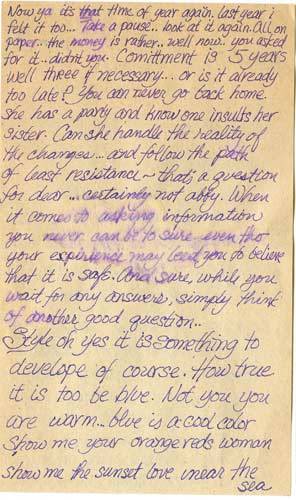 Now ya its that time of year again. last year i
felt it too... Take a pause.. look at it again. All on
paper.. the money is rather.. well now.. you asked
for it.. didnt you. Comitment is 5 years
well three if necessary... or is it already
too late? You can never go back home.
She has a party and know one insults her
sister. Can she handle the reality of
the changes... and follow the path
of least resistance ~ thats a question
for dear... certainly not abby. When
it comes to asking information
you never can be to sure even tho
your expirience may lead you to believe
that it is safe. And sure, while you
wait for any answers, simply think
of another good question..
Style oh yes it is something to
develope of course. How true
it is too be blue. Not you you
are warm... blue is a cool color
Show me your orange reds woman
show me the sunset love near the
sea